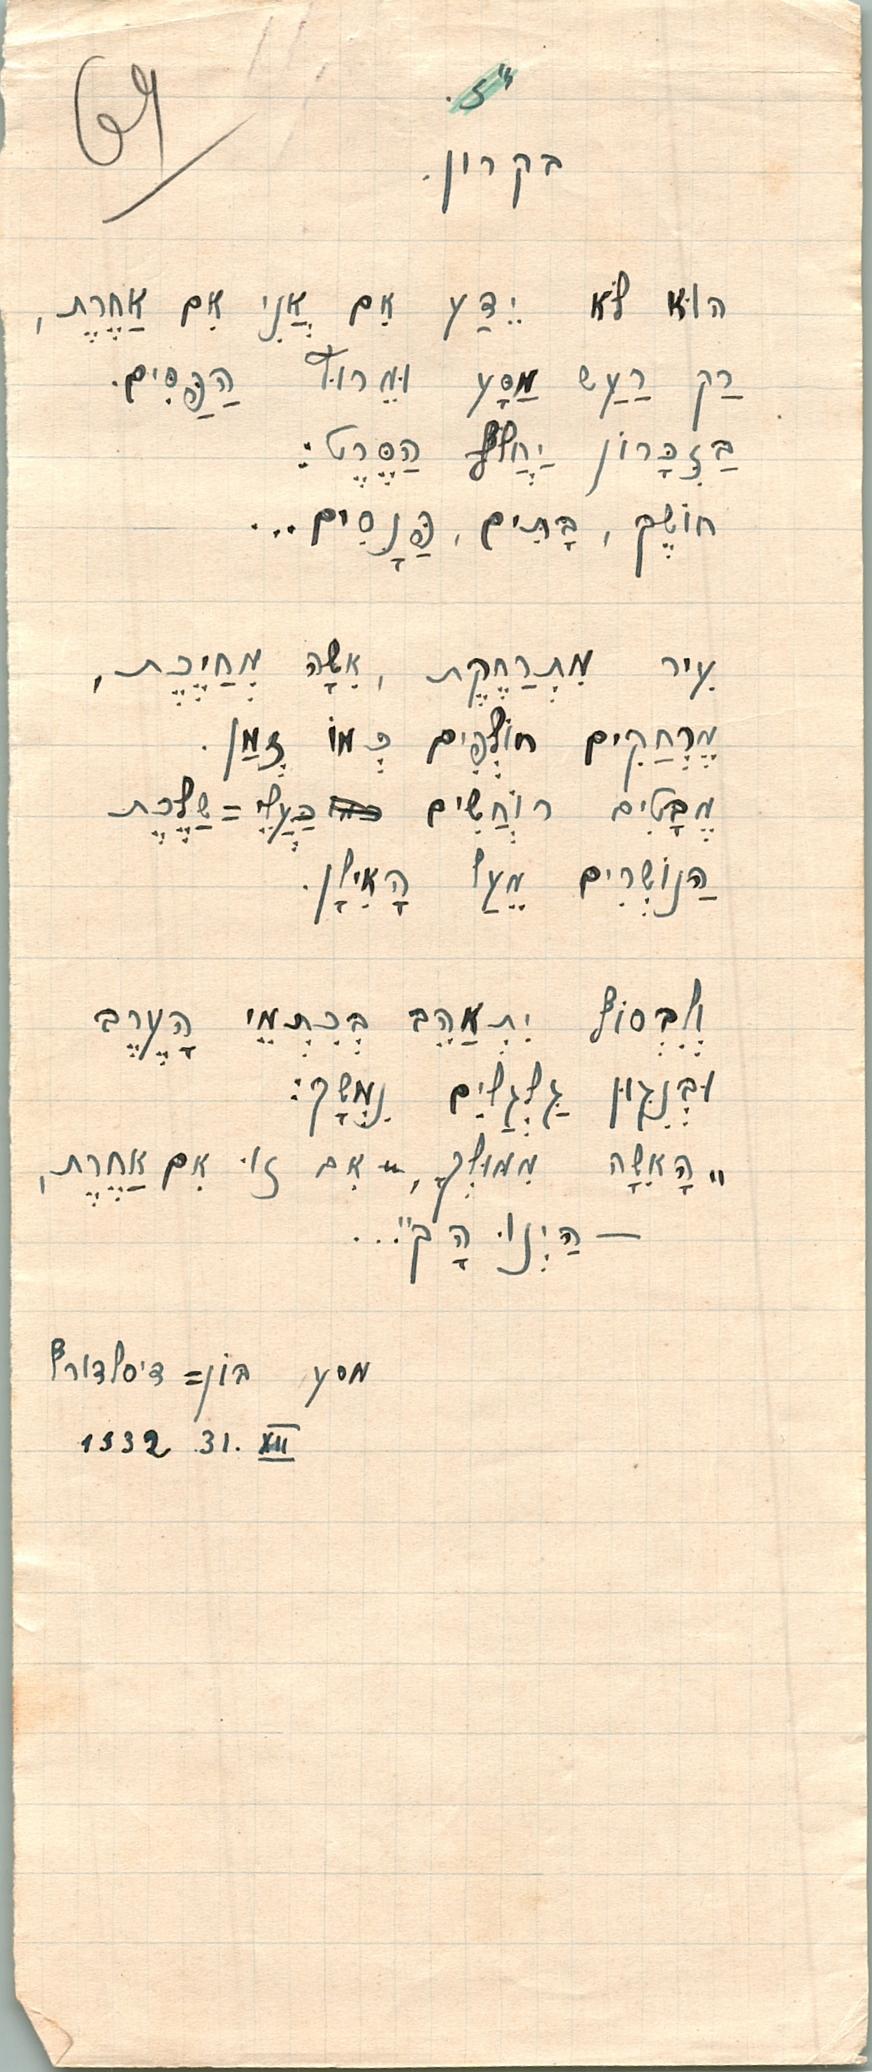 69
ז".
בקרון.
הוּא לֹא יֵדַע אִם אֲנִי אִם אַחֶרֶת,
רַק רַעַשׁ מַסָּע וּמֵרוּץ הַפַּסִּים.
בַּזִּכָּרוֹן יַחֲלֹף הַסֶּרֶט:
חוֹשֶׁך, בָּתִּים, פַּנָסִים...
עִיר מִתְרַחֶקֶת, אִשָּׁה מְחַיֶכֶת,
מֶרְחַקִים חוֹלְפִים כְּמוֹ זְמַן.
מַבָּטִים רוֹחֲשִׁים כַּעֲלֵי=שַׁלֶּכֶת
הַנוֹשְׁרִים מֵעַל הָאִילָן.
וְלִבְסוֹף יִתְאַהֵב בְּכִתְמֵי הָעֶרֶב
וּבְנִגּוּן גַּלְגַלִּים נִמְשָׁך:
„הָאִשָּׁה מִמּוּלְךָ, – אִם זוֹ אִם אַחֶרֶת,
— הַיְנוּ הָך"...
מסע בּוֹן=דיסלדורף
1932 .31. XII